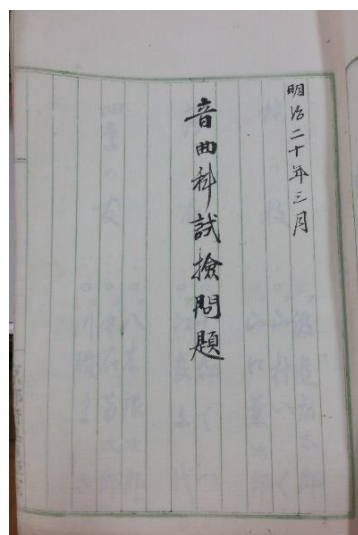 明治二十年三月
音曲科試檢問題